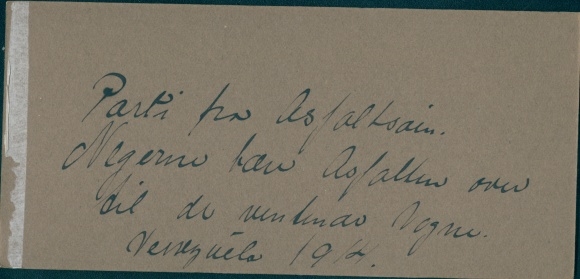 Parti fra Asfaltsøin.
Negerne bær Asfalten over
til de ventende Vogne.
Venezuela 1912.